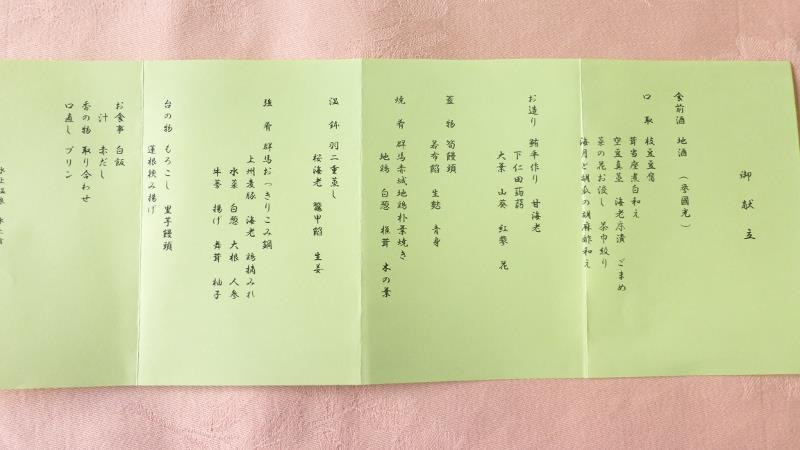 御献立
食前酒 地酒 （誉國光）
口取 枝豆豆腐
茸当座煮白和え
空豆真薯 海老序漬 ごまめ
菜の花お浸し 茶巾絞り
海月と胡瓜の胡麻酢和え
お造り 鮪平作り 甘海老
下仁田蒟蒻
大葉 山葵 紅蓼 花
蓋物 筍饅頭
若布餡 生麩 青身
焼肴 群馬赤城地鶏朴葉焼き
地鶏 白葱 椎茸 木の葉
温鉢 羽二重蒸し
桜海老 鼈甲餡 生姜
強肴 群馬おっきりこみ鍋
上州麦豚 海老 鶏摘みれ
水菜 白葱 大根 人参
牛蒡 揚げ 舞茸 柚子
台の物 もろこし 里芋饅頭
蓮根挟み揚げ
お食事 白飯
汁 赤だし
香の物 取り合わせ
口直し プリン
水上温泉